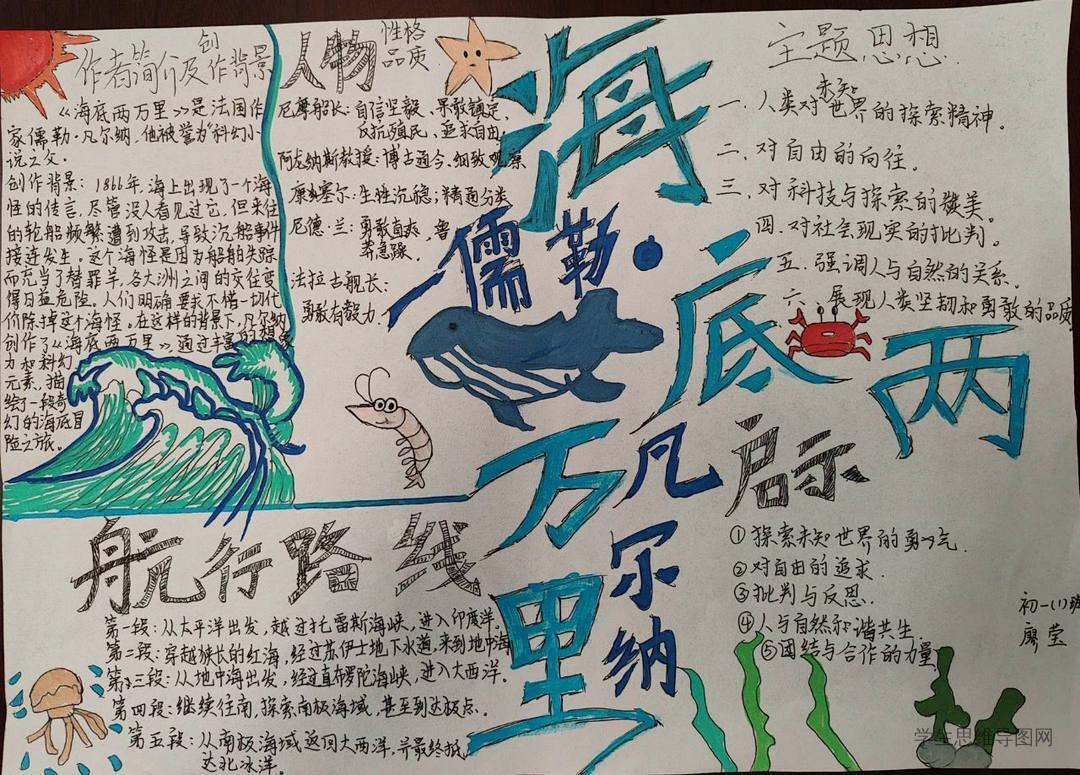 作者简介及创作背景
《海底两万里》是法国作
家儒勒·凡尔纳，他被誉为"科幻小
说之父。
创作背景：1866年，海上出现了一个海
怪的传言，尽管没人看见过它，但来往
的轮船频繁遭到攻击，导致沉船事件
接连发生。这个海怪是因为船舶的失踪
而充当了替罪羊，各大洲之间的交往变
得日益危险。人们明确要求不惜一切代
价除掉这个海怪。在这样的背景下，凡尔纳
创作了《海底两万里》，通过丰富的想象
力和科幻
元素，描
绘了一段奇
幻的海底冒
险之旅。
人物
性格
品质
尼摩船长：自信坚毅、果敢镇定，
反抗殖民、追求自由，
阿龙纳斯教授：博古通今，细致观察
康塞尔：生性沉稳；精通分类
尼德·兰：勇敢直爽，鲁
莽急躁。
法拉古舰长：
勇敢有毅力
海底两万里
一儒勒·凡尔纳
主题思想
一、人类对未知世界的探索精神。
二、对自由的向往。
三、对科技与探索的赞美。
四、对社会现实的批判。
五、强调人与自然的关系。
六、展现人类坚韧和勇敢的品质
启示
①探索未知世界的勇气.
②对自由的追求.
③批判与反思.
④人与自然和谐共生.
⑤团结与合作的力量
初一(1)班
廖莹
航行路线
第一段：从太平洋出发，越过托雷斯海峡，进入印度洋。
第二段：穿越狭长的红海，经过苏伊士地下水道，来到地中海
第三段：从地中海出发，经过直布罗陀海峡，进入大西洋。
第四段：继续往南，探索南极海域，甚至到达极点。
第五段：从南极海域返回大西洋，并最终抵
达北冰洋。
学生思维导图网